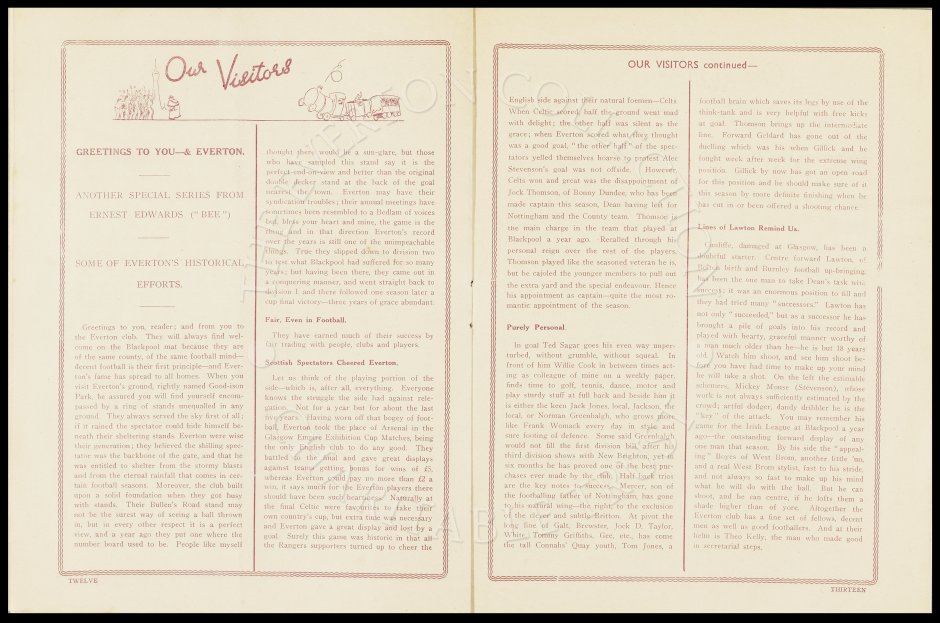 Our Visitors
GREETINGS TO YOU—& EVERTON.
ANOTHER SPECIAL SERIES FROM
ERNEST EDWARDS ("BEE")
SOME OF EVERTON'S HISTORICAL
EFFORTS.
Greetings to you, reader; and from you to
the Everton club. They will always find wel-
come on the Blackpool mat because they are
of the same county, of the same football mind—
decent football is their first principle—and Ever-
ton's fame has spread to all homes. When you
visit Everton's ground, rightly named Good-ison
Park, be assured you will find yourself encom-
passed by a ring of stands unequalled in any
ground. They always served the sky first of all;
if it rained the spectator could hide himself be-
neath their sheltering stands. Everton were wise
their generation; they believed the shilling spec-
tator was the backbone of the gate, and that he
was entitled to shelter from the stormy blasts
and from the eternal rainfall that comes in cer-
tain football seasons. Moreover, the club built
upon a solid foundation when they got busy
with stands. Their Bullen's Road stand may
not be the surest way of seeing a ball thrown
in, but in every other respect it is a perfect
view, and a year ago they put one where the
number board used to be. People like myself
thought there would be a sun-glare, but those
who have sampled this stand say it is the
perfect end-on-view and better than the original
double decker stand at the back of the goal
nearest the town. Everton may have their
syndication troubles; their annual meetings have
sometimes been resembled to a Bedlam of voices
but, bless your heart and mine, the game is the
thing and in that direction Everton's record
over the years is still one of the unimpeachable
things. True they slipped down to division two
to test what Blackpool had suffered for so many
years; but having been there, they came out in
a conquering manner, and went straight back to
division 1 and there followed one season later a
cup final victory—three years of grace abundant.
Fair, Even in Football.
They have earned much of their success by
fair trading with people, clubs and players.
Scottish Spectators Cheered Everton.
Let us think of the playing portion of the
side—which is, after all, everything. Everyone
knows the struggle the side had against rele-
gation. Not for a year but for about the last
five years. Having worn off that bogey of foot-
ball, Everton took the place of Arsenal in the
Glasgow Empire Exhibition Cup Matches, being
the only English club to do any good. They
battled to the final and gave great displays
against teams getting bonus for wins of £5,
whereas Everton could pay no more than £2 a
win, it says much for the Everton players there
should have been such heartiness. Naturally at
the final Celtic were favourites to take their
own country's cup, but extra time was necessary
and Everton gave a great display and lost by a
goal. Surely this game was historic in that all
the Rangers supporters turned up to cheer the
TWELVE
OUR VISITORS continued—
English side against their natural foemen—Celts
When Celtic scored, half the ground went mad
with delight; the other half was silent as the
grace; when Everton scored what they thought
was a good goal, "the other half" of the spec-
tators yelled themselves hoarse to protest Alec
Stevenson's goal was not offside. However,
Celts won and great was the disappointment of
Jock Thomson, of Bonny Dundee, who has been
made captain this season, Dean having left for
Nottingham and the County team. Thomson is
the main charge in the team that played at
Blackpool a year ago. Recalled through his
personal reign over the rest of the players,
Thomson played like the seasoned veteran he is,
but he cajoled the younger members to pull out
the extra yard and the special endeavour. Hence
his appointment as captain—quite the most ro-
mantic appointment of the season.
Purely Personal.
In goal Ted Sagar goes his even way unper-
turbed, without grumble, without squeal. In
front of him Willie Cook in between times act-
ing as colleague of mine on a weekly paper,
finds time to golf, tennis, dance, motor and
play sturdy stuff at full back and beside him it
is either the keen Jack Jones, local, Jackson, the
local, or Norman Greenhalgh, who grows more
like Frank Womack every day in style and
sure footing of defence. Some said Greenhalgh
would not fill the first division bill after his
third division shows with New Brighton, yet in
six months he has proved one of the best pur-
chases ever made by the club. Half-back trios
are the key notes to success. Mercer, son of
the footballing father of Nottingham, has gone
to his natural wing—the right, to the exclusion
of the clever and subtle Britton. At pivot the
long line of Galt, Brewster, Jock D. Taylor,
White, Tommy Griffiths, Gee, etc., has come
the tall Connahs' Quay youth, Tom Jones, a
football brain which saves its legs by use of the
think-tank and is very helpful with free kicks
at goal. Thomson brings up the intermediate
line. Forward Geldard has gone out of the
duelling which was his when Gillick and he
fought week after week for the extreme wing
position. Gillick by now has got an open road
for this position and he should make sure of it
this season by more definite finishing when he
has cut in or been offered a shooting chance.
Lines of Lawton Remind Us.
Cunliffe, damaged at Glasgow, has been a
doubtful starter. Centre forward Lawton, of
Bolton birth and Burnley football up-bringing,
has been the one man to take Dean's task with
success; it was an enormous position to fill and
they had tried many "successors." Lawton has
not only "succeeded," but as a successor he has
brought a pile of goals into his record and
played with hearty, graceful manner worthy of
a man much older than he—he is but 18 years
old. Watch him shoot, and see him shoot be-
fore you have had time to make up your mind
he will take a shot. On the left the estimable
schemers, Mickey Mouse (Stevenson), whose
work is not always sufficiently estimated by the
crowd; artful dodger, dandy dribbler he is the
"key" of the attack. You may remember his
game for the Irish League at Blackpool a year
ago—the outstanding forward display of any
one man that season. By his side the "appeal-
ing" Boyes of West Brom, another little 'un,
and a real West Brom stylist, fast to his stride,
and not always so fast to make up his mind
what he will do with the ball. But he can
shoot, and he can centre, if he lofts them a
shade higher than of yore. Altogether the
Everton club has a fine set of fellows, decent
men as well as good footballers. And at their
helm is Theo Kelly, the man who made good
in secretarial steps.
THIRTEEN